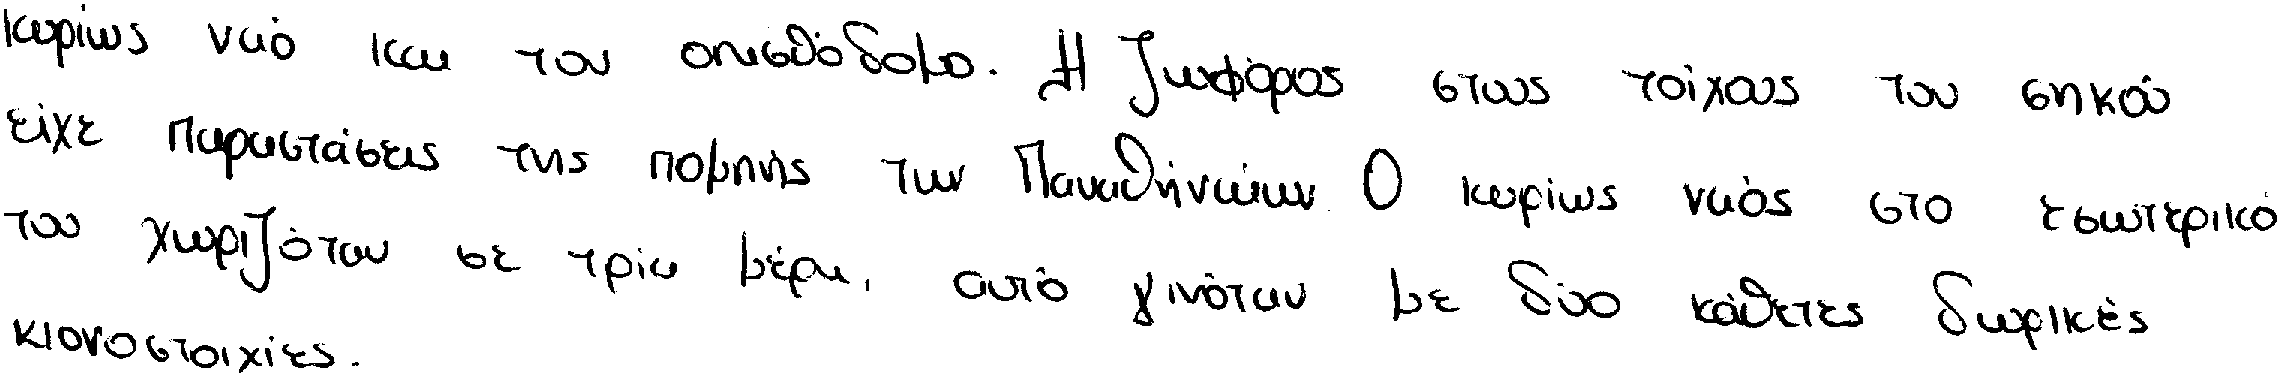 κυρίως ναό και τον οπισθόδομο. Η ζωφόρος στους τοίχους του σηκού
είχε παραστάσεις της πομπής των Παναθηναίων. Ο κυρίως ναός στο εσωτερικό
του χωριζόταν σε τρία μέρη, αυτό γινόταν με δύο κάθετες δωρικές
κιονοστοιχίες.